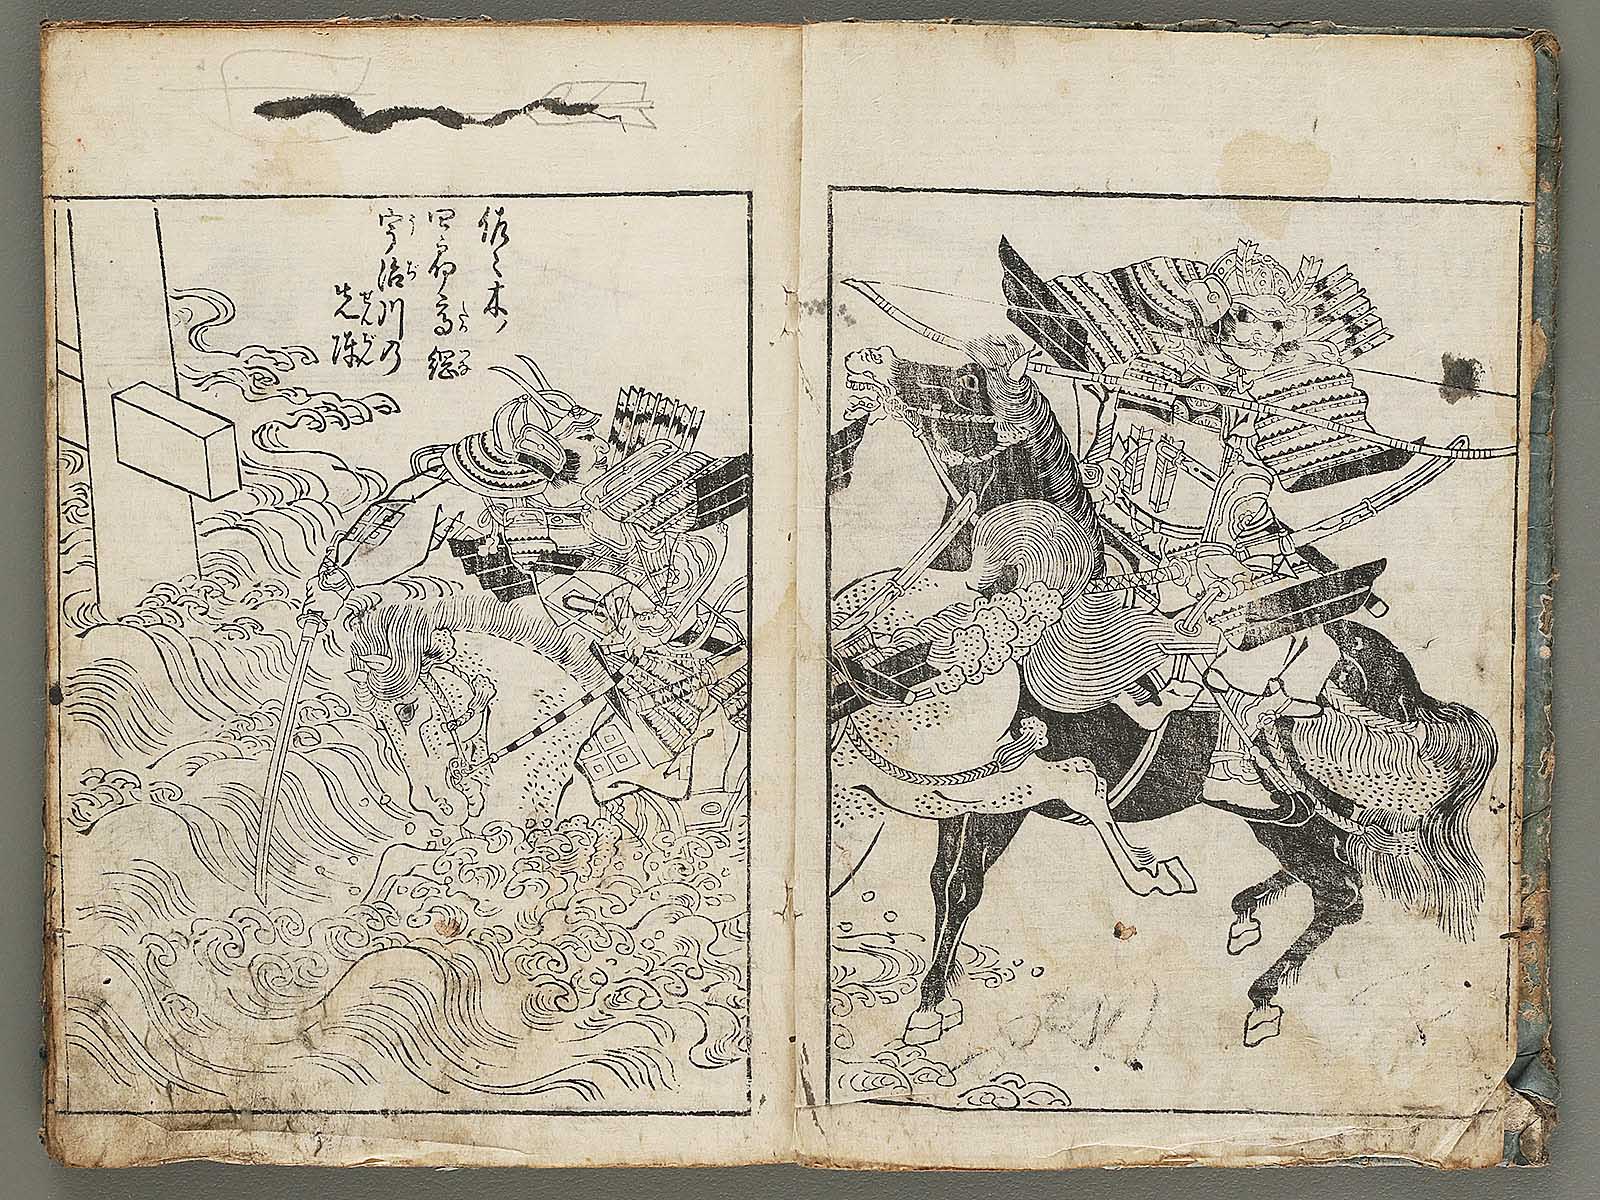 佐々木
四郎高綱
宇治川乃
先陣